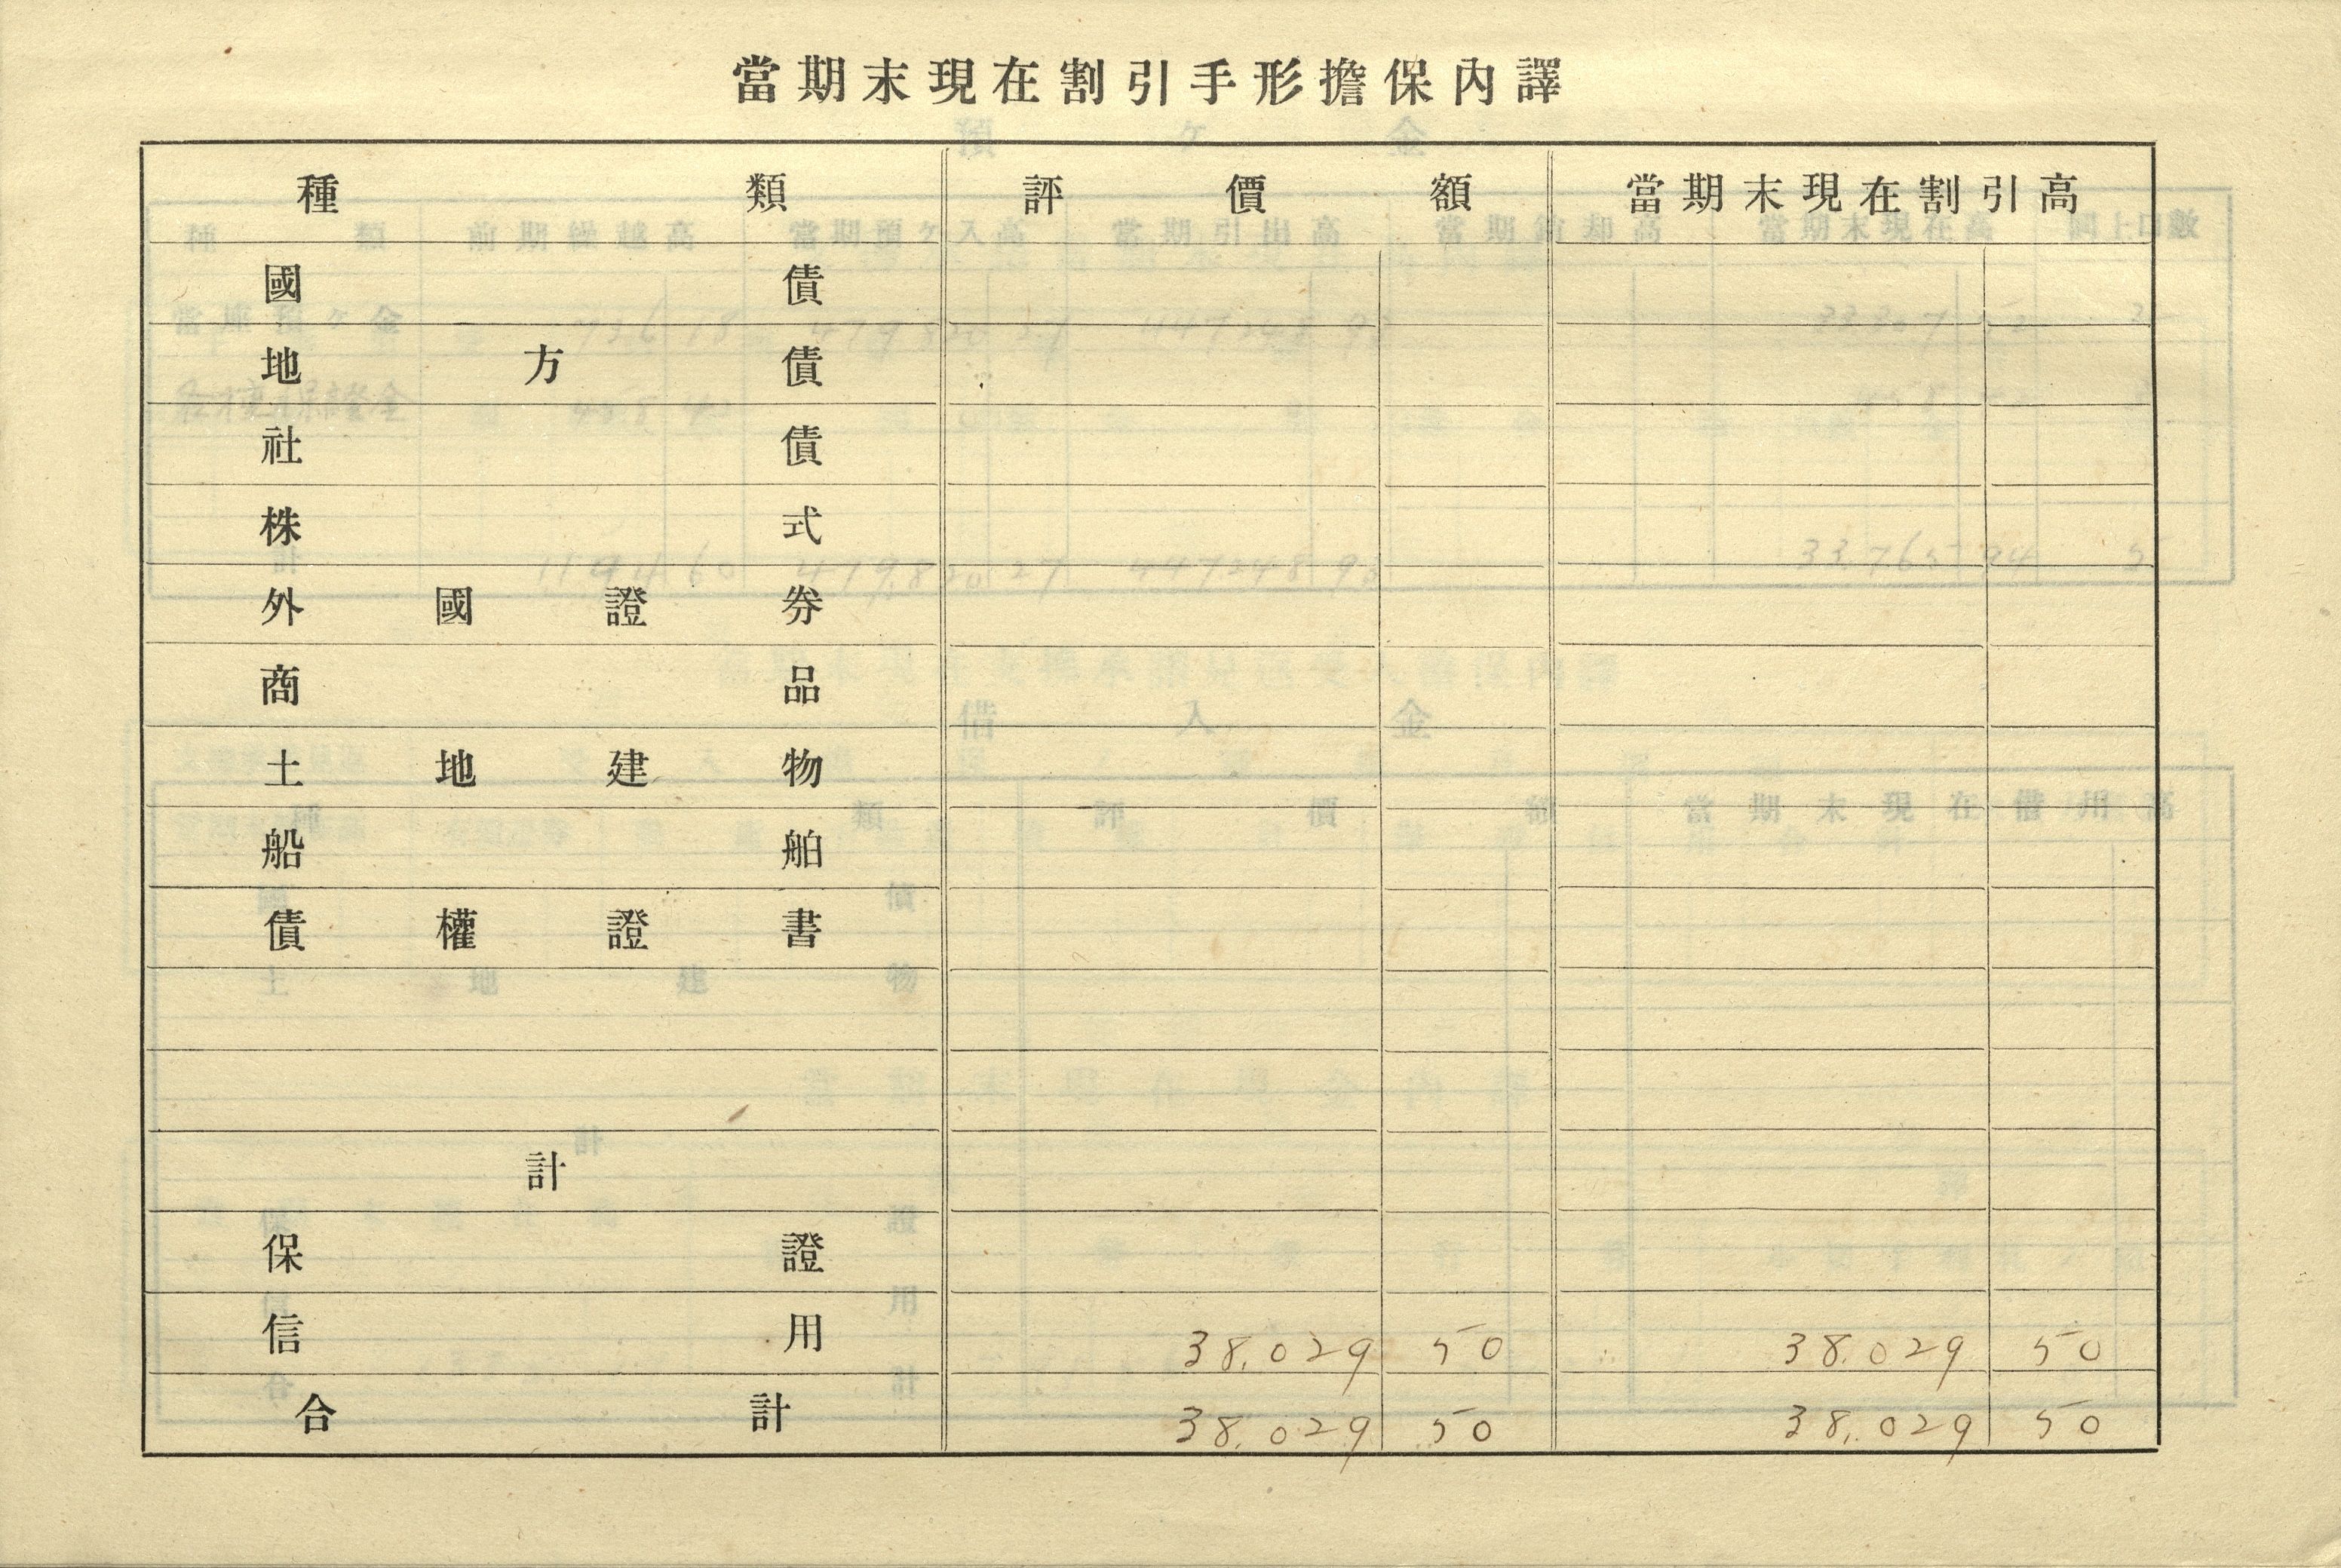 當期末現在割引手形擔保內譯
種類 評價額 當期末現在割引高
國債
地方債
社債
株式
外國證券
商品
土地建物
船舶
債權證書
計
保證
信用 38,029 50 38,029 50
合計 38,029 50 38,029 50